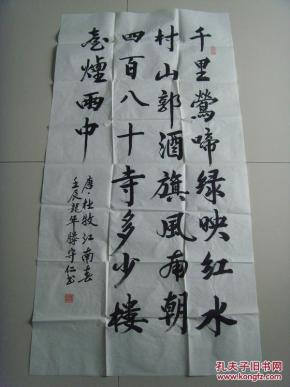 千里鶯啼绿映红水
村山郭酒旗風南朝
四百八十寺多少楼
臺煙雨中
唐·杜牧江南春
壬辰龍年滕守仁书
孔夫子旧书网